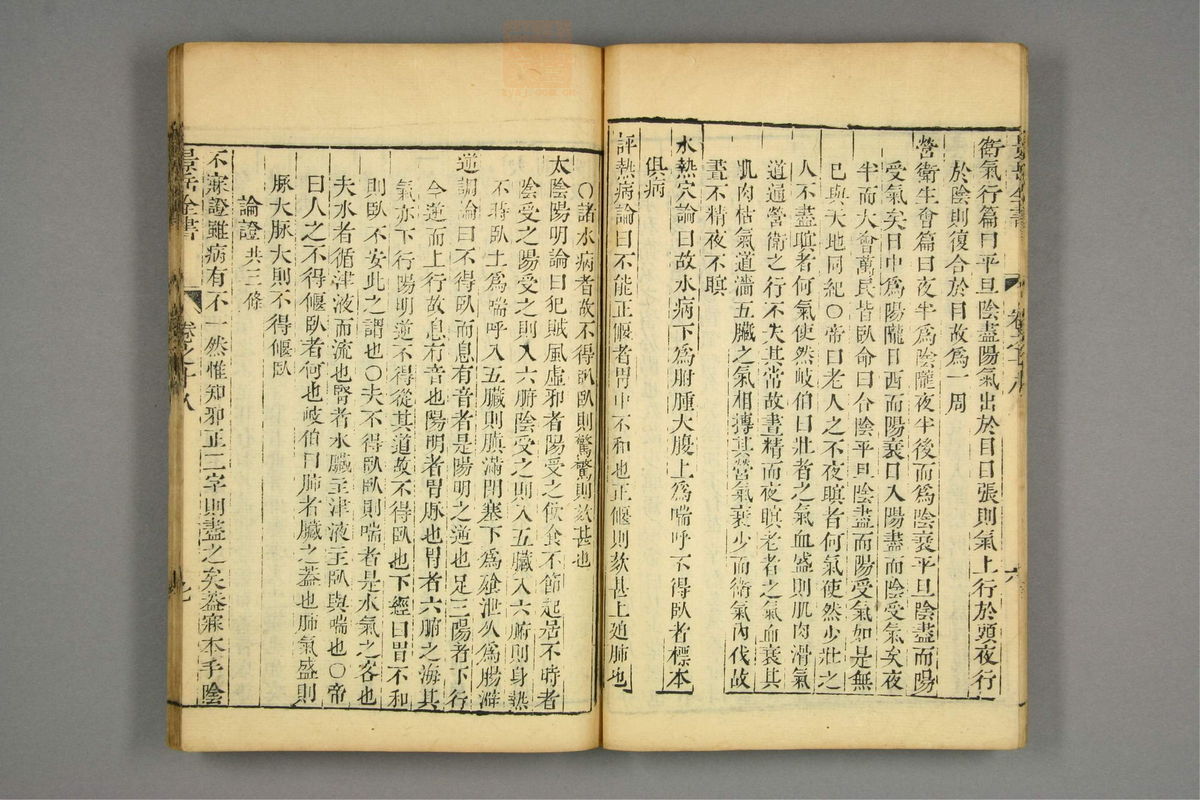 衛氣行篇曰平旦陰盡陽氣出於目目張則氣上行於頭夜行
於陰則復合於目故爲一周
營衛生會篇曰夜半爲陰隴夜半後而爲陰衰平旦陰盡而陽
受氣矣日中爲陽隴日西而陽衰日入陽盡而陰受氣矣夜
半而大會萬民皆臥命曰合陰平旦陰盡而陽受氣如是無
已與天地同紀〇帝曰老人之不夜瞑者何氣使然少壯之
人不晝瞑者何氣使然岐伯曰壯者之氣血盛則肌肉滑氣
道通營衛之行不失其常故晝精而夜瞑老者之氣血衰其
肌肉枯氣道濇五臟之氣相搏其營氣衰少而衛氣內伐故
晝不精夜不瞑
水熱穴論曰故水病下爲胕腫大腹上爲喘呼不得臥者標本
俱病
評熱病論曰不能正偃者胃中不和也正偃則欬甚上迫肺也
〇諸水病者故不得臥臥則驚驚則欬甚也
太陰陽明論曰犯賊風虛邪者陽受之飲食不節起居不時者
陰受之陽受之則入六腑陰受之則入五臟入六腑則身熱
不時臥上爲喘呼入五臟則䐜滿閉塞下爲飧泄久爲腸澼
逆調論曰不得臥而息有音者是陽明之逆也足三陽者下行
今逆而上行故息有音也陽明者胃脉也胃者六腑之海其
氣亦下行陽明逆不得從其道故不得臥也下經曰胃不和
則臥不安此之謂也〇夫不得臥臥則喘者是水氣之客也
夫水者循津液而流也腎者水臟主津液主臥與喘也〇帝
曰人之不得偃臥者何也岐伯曰肺者臟之蓋也肺氣盛則
脉大脉大則不得偃臥
論證共三條
不寐證雖病有不一然惟知邪正二字則盡之矣蓋寐本乎陰
景岳全書
卷之十八